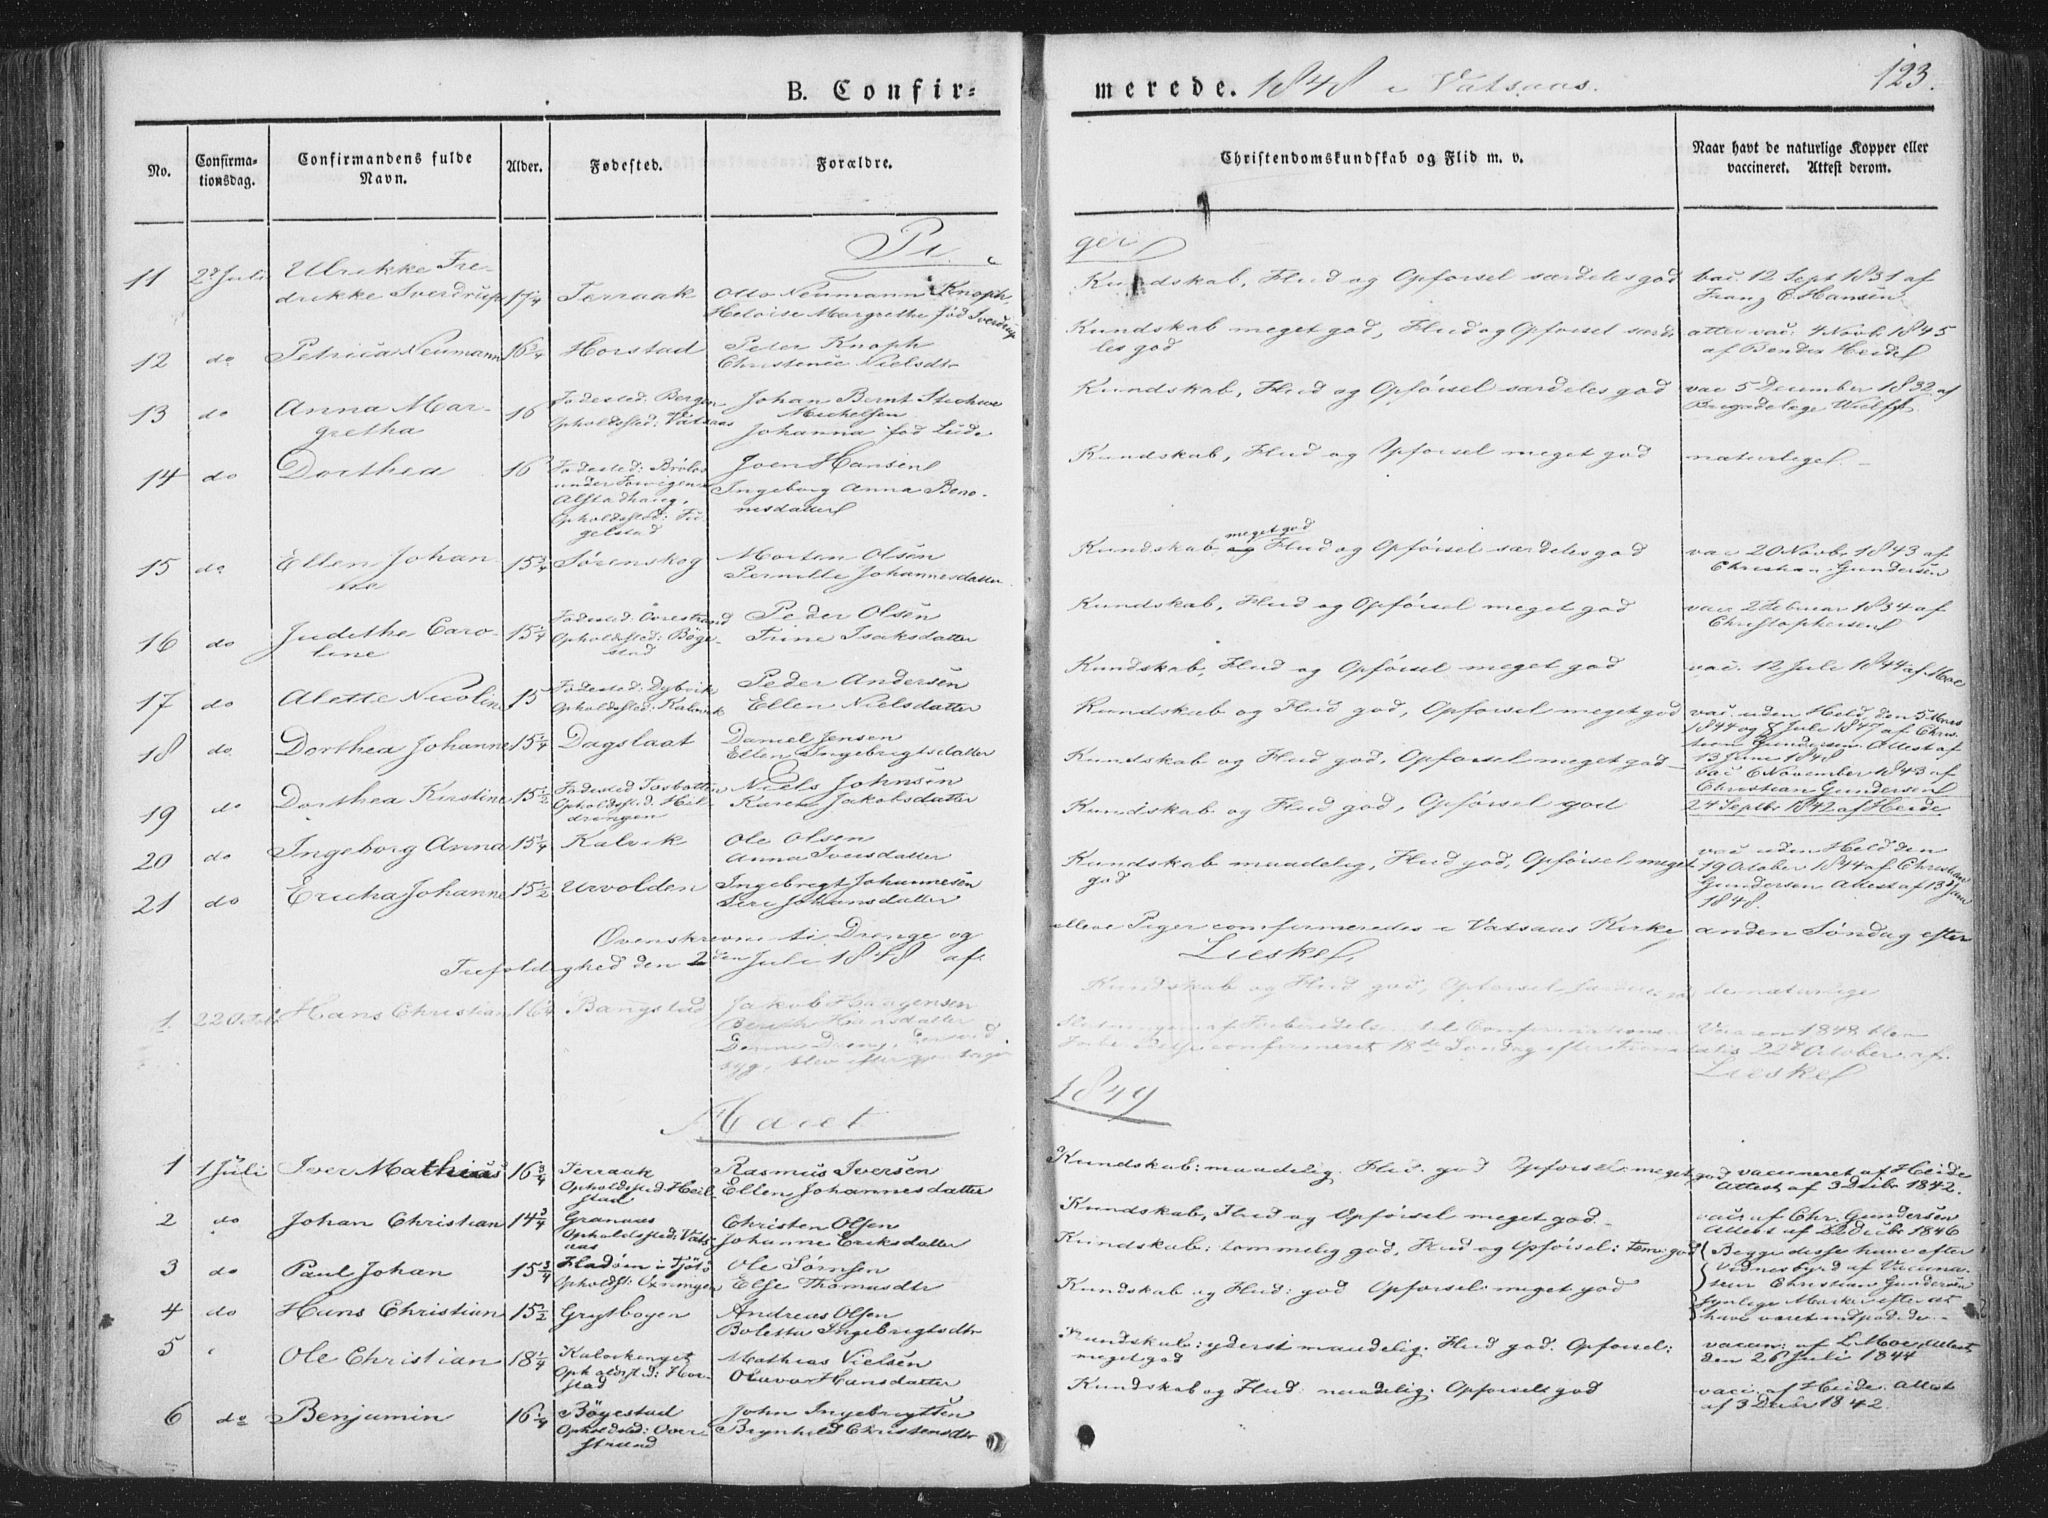 B. Confir=
merede. 1848 i Vatsaas.
123.
No.
Confirma-
tionsdag.
Confirmandens fulde
Navn.
Alder.
Fødested.
Forældre.
Christendomskundskab og Flid m. v.
Naar havt de naturlige Kopper eller
vaccineret. Attest derom.
Pi
ger
11 2d Juli Ulrikke Fre-
drikke Sverdrup 17 1/4 Terraak Otto Neumann Knoph
Heloise Margrethe fød Sverdrup
Kundskab, Flid og Opførsel særdeles god
vac. 12 Sept 1831 af
Franz C. Hansen
12 do Petrica Neumann 16 3/4 Horstad Peter Knoph
Christence Nielsdtr
Kundskab meget god, Flid og Opførsel særde
les god
atter vac. 4 Novbr 1845
af Heide
13 do Anna Mar-
gretha 16 Fødested: Bergen
Opholdssted: Vatsaas
Johan Bernt
Michelsen
Johanna fød
Kundskab, Flid og Opførsel særdeles god
vac 5 December 1832 af
Brigadelæge Wulff
14 do Dorthea 16 Fødested:
under
Alstadhaug,
Opholdssted: Fu-
gelstad
Joen Hansen
Ingeborg Anna Bero-
nesdatter
Kundskab, Flid og Opførsel meget god
naturlige.
15 do Ellen Johan-
na 15 3/4 Sørenskog Morten Olsen
Pernille Johannesdatter
meget god
Kundskab og Flid og Opførsel særdeles god
vac 20 Novbr 1843 af
Christian Gundersen
16 do Judithe Caro-
line 15 1/4 Fødested: Overstrand
Opholdssted: Böge-
stad
Peder Olsen
Trine Isaksdatter
Kundskab, Flid og Opførsel meget god
vac 2 Februar 1834 af
Christophersen
17 do Alette Nicoline 15 Fødested: Dybvik
Opholdssted: Kalvik
Peder Andersen
Ellen Nielsdatter
Kundskab, Flid og Opførsel meget god
vac. 12 Juli 1844 af Moe
18 do Dorthea Johanne 15 1/4 Dagslaat Daniel Jensen
Ellen Ingebrigtsdatter
Kundskab og Flid god, Opførsel meget god
vac. uden Held den 5 Mars
1844 og 8 Juli 1847 af Chris-
tian Gundersen. Attest af
13 Juni 1848
19 do Dorthea Kirstine 15 1/2 Fødested Tosbotten
Opholdssted: Heil-
Niels Johnsen
Karen Jakobsdatter
Kundskab og Flid god, Opførsel meget god
vac 6 November 1843 af
Christian Gundersen
20 do Ingeborg Anna 15 1/4 Kalvik Ole Olsen
Anna Iversdatter
Kundskab og Flid god, Opførsel god
24 Septbr 1842 af Heide
21 do Ericha Johanne 15 1/2 Urvolden Ingebrigt Johannesen
Siri Johansdatter
Kundskab maadelig, Flid god, Opførsel meget
god
vac uden Held den
19 October 1844 af Christian
Gundersen Attest af 13 Juni
1848.
Ovenskrevne ti Drenge og
elleve Piger comfirmeredes i Vatsaas Kirke
anden Søndag efter
Trefoldighed den 2den Juli 1848 af
Lieskel,
1 22 Octob Hans Christian 16 1/4 Bangstad Jakob Haagensen
Hansdatter
Denne Dreng,
syg, blev efter
Kundskab og Flid god, Opførsel særdeles god
de naturlige
Slutningen af Forberedelsen til Confirmationen
Vaaren 1848 blev
Forberedelse confirmeret 18de Søndag efter Trinitatis 22d October af
Lieskel
Aaret
1849
1 1 Juli Iver Mathias 16 3/4 Terraak
Opholdssted: Heil-
stad
Rasmus Iversen
Ellen Johannesdatter
Kundskab: maadelig. Flid: god Opførsel: meget god
vaccineret af Heide
Attest af 3 Decbr 1842.
2 do Johan Christian 14 3/4 Granaas
Opholdssted: Vats-
aas
Christen Olsen
Johanne Eriksdatter
Kundskab, Flid og Opførsel meget god.
vacc af Chr. Gundersen
Attest af 22 Decbr 1846
3 do Paul Johan 15 3/4 Fladøen i Tjøtø
Opholdst:
Ole Sørnsen
Else Thomasdtr
Kundskab: temmelig god, Flid og Opførsel: tem: god
Begge disse have efter
Vidnesbyrd af Vaccina-
teur Christian Gundersen
synlige Mærker efter at
have været indpodede.
4 do Hans Christian 15 1/2 Grytbogen Andreas Olsen
Boletta Ingebrigtsdtr
Kundskab og Flid: god Opførsel: meget god
5 Ole Christian 18 1/4 Kalvikenget
Opholdssted: Hor-
stad
Mathias Nielsen
Olava Hansdatter
Kundskab: yderst maadelig. Flid god. Opførsel:
meget god
vaccin: af L. Moe, Attest
den 26 Juli 1844
6 do Benjamin 16 1/4 Bögestad
Opholdssted: Over-
strand
John Ingebrigtsen
Brynhild Christensdtr
Kundskab og Flid: maadelig. Opførsel: god
vacc. af Heide. Attest
af 3 Decbr 1842.